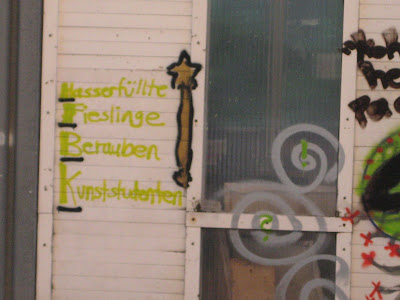 Hasserfüllte
Fieslinge
Berauben
Kunststudenten